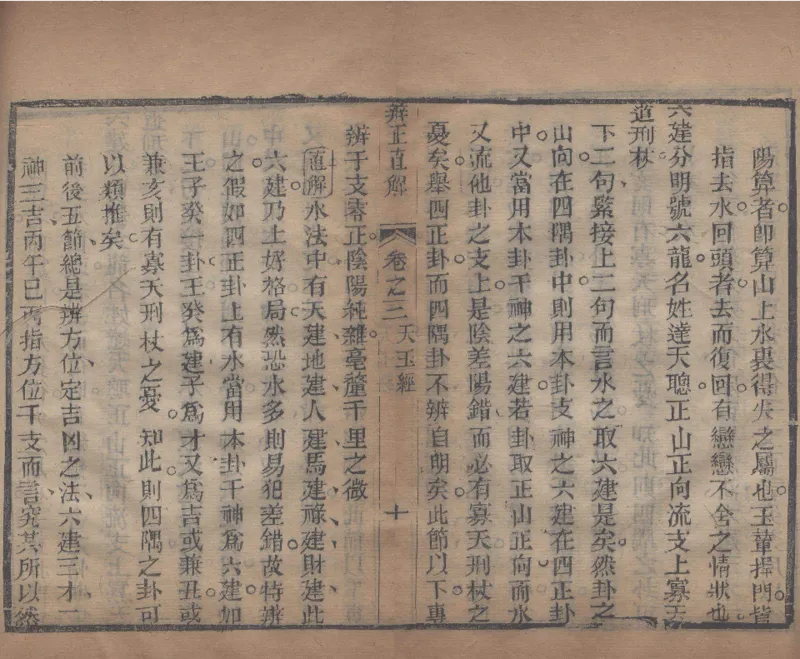 陽算者卽算山上水裏得失之屬也玉輦捍門皆
指去水回頭者去而復回有戀戀不舍之情狀也
六建分明號六龍名姓達天聰正山正向流支上寡夭
遭刑杖
下二句緊接上二句而言水之取六建是矣然卦之
山向在四隅卦中則用本卦支神之六建在四正卦
中又當用本卦干神之六建若卦取正山正向而
又流他卦之支上是陰差陽錯而必有寡夭刑杖之
憂矣舉四正卦而四隅卦不辨自明矣此節以下專
辨正直解 卷之三 天玉經 十
辨干支零正陰陽純雜毫釐千里之微
直解水法中有天建地建人建馬建祿建財建此
六建乃上好格局然恐水多則易犯差錯故特辨
之假如四正卦上有水當用本卦干神爲六建如
壬子癸一卦壬癸爲建子爲才又爲吉或兼丑或
兼亥則有寡夭刑杖之憂 知此則四隅之卦可
以類推矣
前後五節總是辨方位定吉凶之法六建三才一
神三吉丙午巳丙指方位干支而言究其所以然